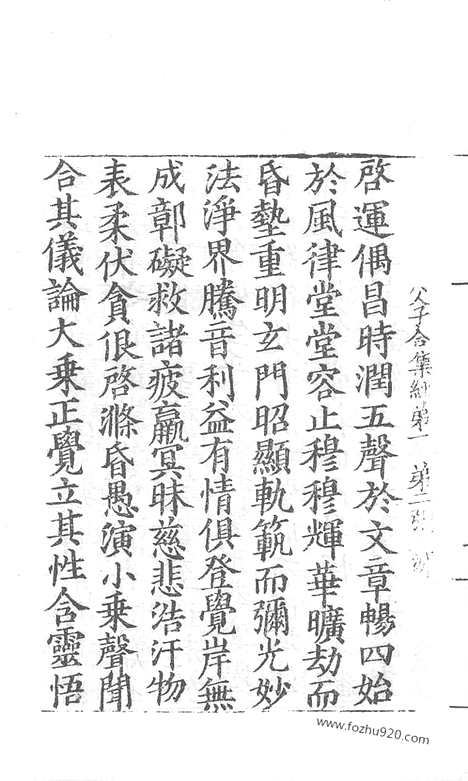 父子合集經第一　第二張
啓運偶昌時潤五聲於文章暢四始
於風律堂堂容止穆穆輝華曠劫而
昏墊重明玄門昭顯軌範而彌光妙
法淨界騰音利益有情俱登覺岸無
成鄣礙救諸疲羸冥昧慈悲浩汗物
表柔伏貪佷啓滌昏愚演小乗聲聞
合其儀論大乗正覺立其性含靈悟
www.fozhu920.com